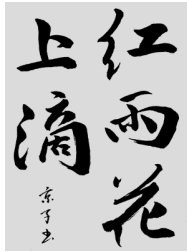 红雨花
上滴
京子书